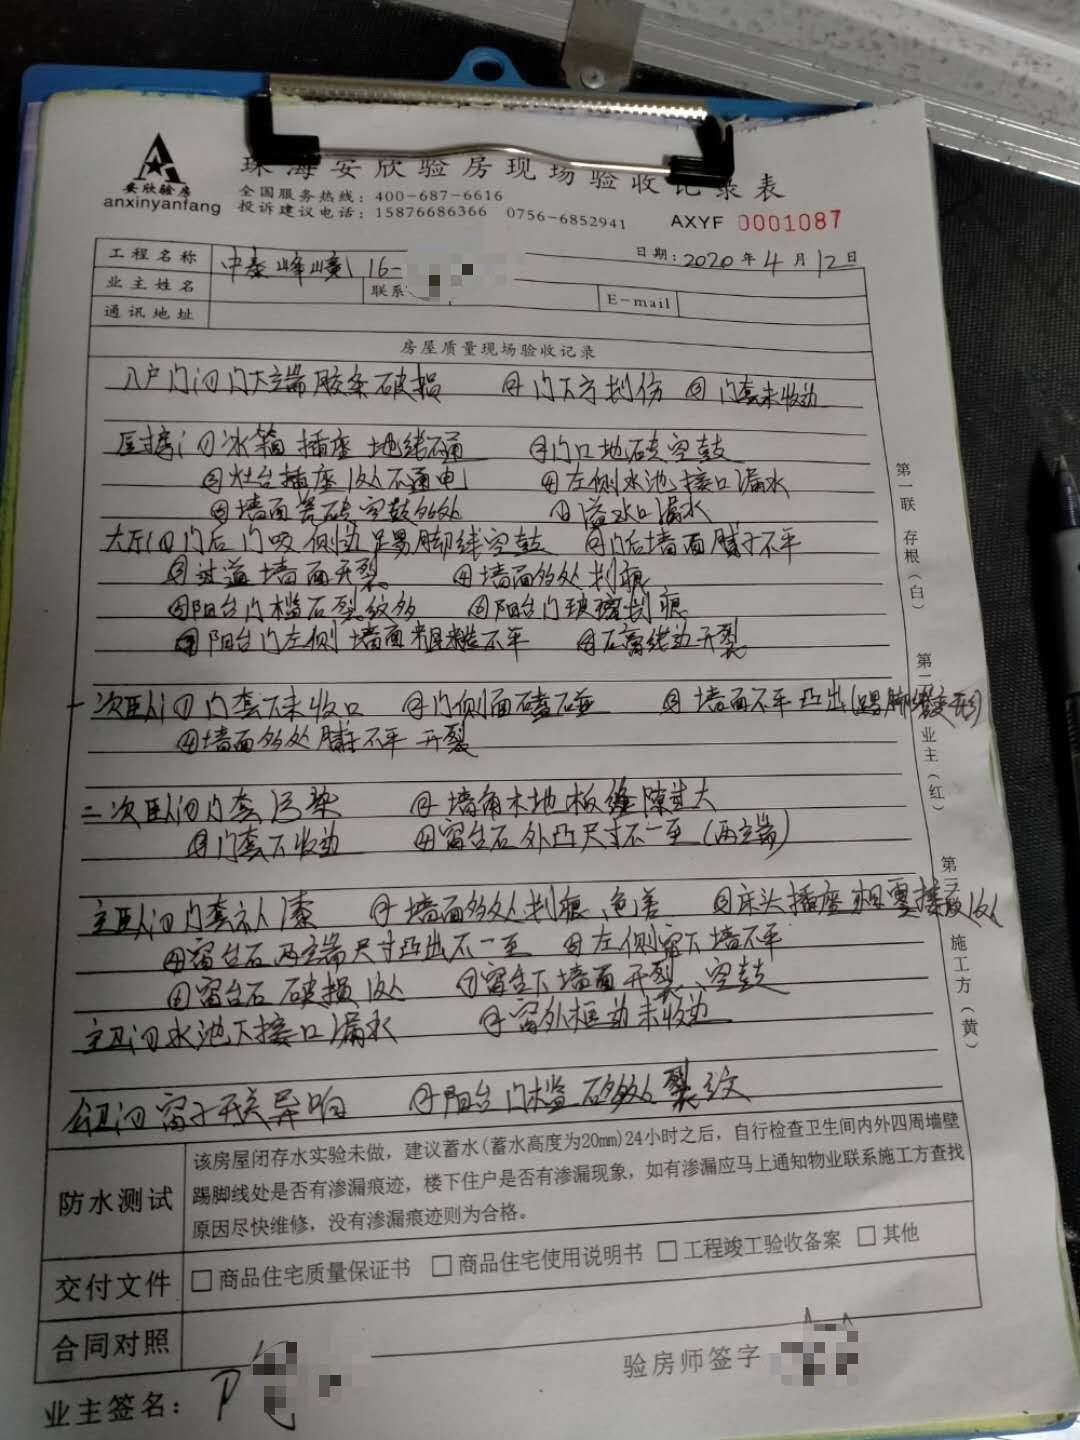 安欣验房
anxinyanfang
珠海安欣验房现场验收记录表
全国服务热线：400-687-6616
投诉建议电话：15876686366 0756-6852941 AXYF 0001087
工程名称 中泰峰境 16- 日期：2020年4月12日
业主姓名 联系 E-mail
通讯地址
房屋质量现场验收记录
入户门①门下端胶条破损 ②门下方划伤 ③门套未收边
厨房：①冰箱插座地线不通 ②门口地砖空鼓
③灶台插座1处不通电 ④左侧水池接口漏水
⑤墙面瓷砖空鼓多处 ⑥溢水口漏水
大厅①门后门吸侧边踢脚线空鼓 ②门后墙面腻子不平
③过道墙面开裂 ④墙面多处划痕
⑤阳台门槛石裂纹多 ⑥阳台门玻璃划痕
⑦阳台门左侧墙面粗糙不平 ⑧石膏线边开裂
一次卧①门套下未收口 ②门侧面磕碰 ③墙面不平凸出(踢脚线变形)
④墙面多处腻子不平 开裂
二次卧①门套污染 ②墙角木地板缝隙过大
③门套不收边 ④窗台石外凸尺寸不一至(两端)
主卧①门套 漆 ②墙面多处划痕、色差 ③床头插座相零接反1处
④窗台石两端尺寸凸出不一至 ⑤左侧窗下墙不平
⑥窗台石破损1处 ⑦窗台下墙面开裂、空鼓
主卫①水池下接口漏水 ②窗外框边未收边
公卫①窗子开关异响 ②阳台门槛石多处裂纹
防水测试 该房屋闭存水实验未做，建议蓄水(蓄水高度为20mm)24小时之后，自行检查卫生间内外四周墙壁
踢脚线处是否有渗漏痕迹，楼下住户是否有渗漏现象，如有渗漏应马上通知物业联系施工方查找
原因尽快维修，没有渗漏痕迹则为合格。
交付文件 □商品住宅质量保证书 □商品住宅使用说明书 □工程竣工验收备案 □其他
合同对照
业主签名： 验房师签字
第一联 存根(白) 第二联 业主(红) 第三联 施工方(黄)